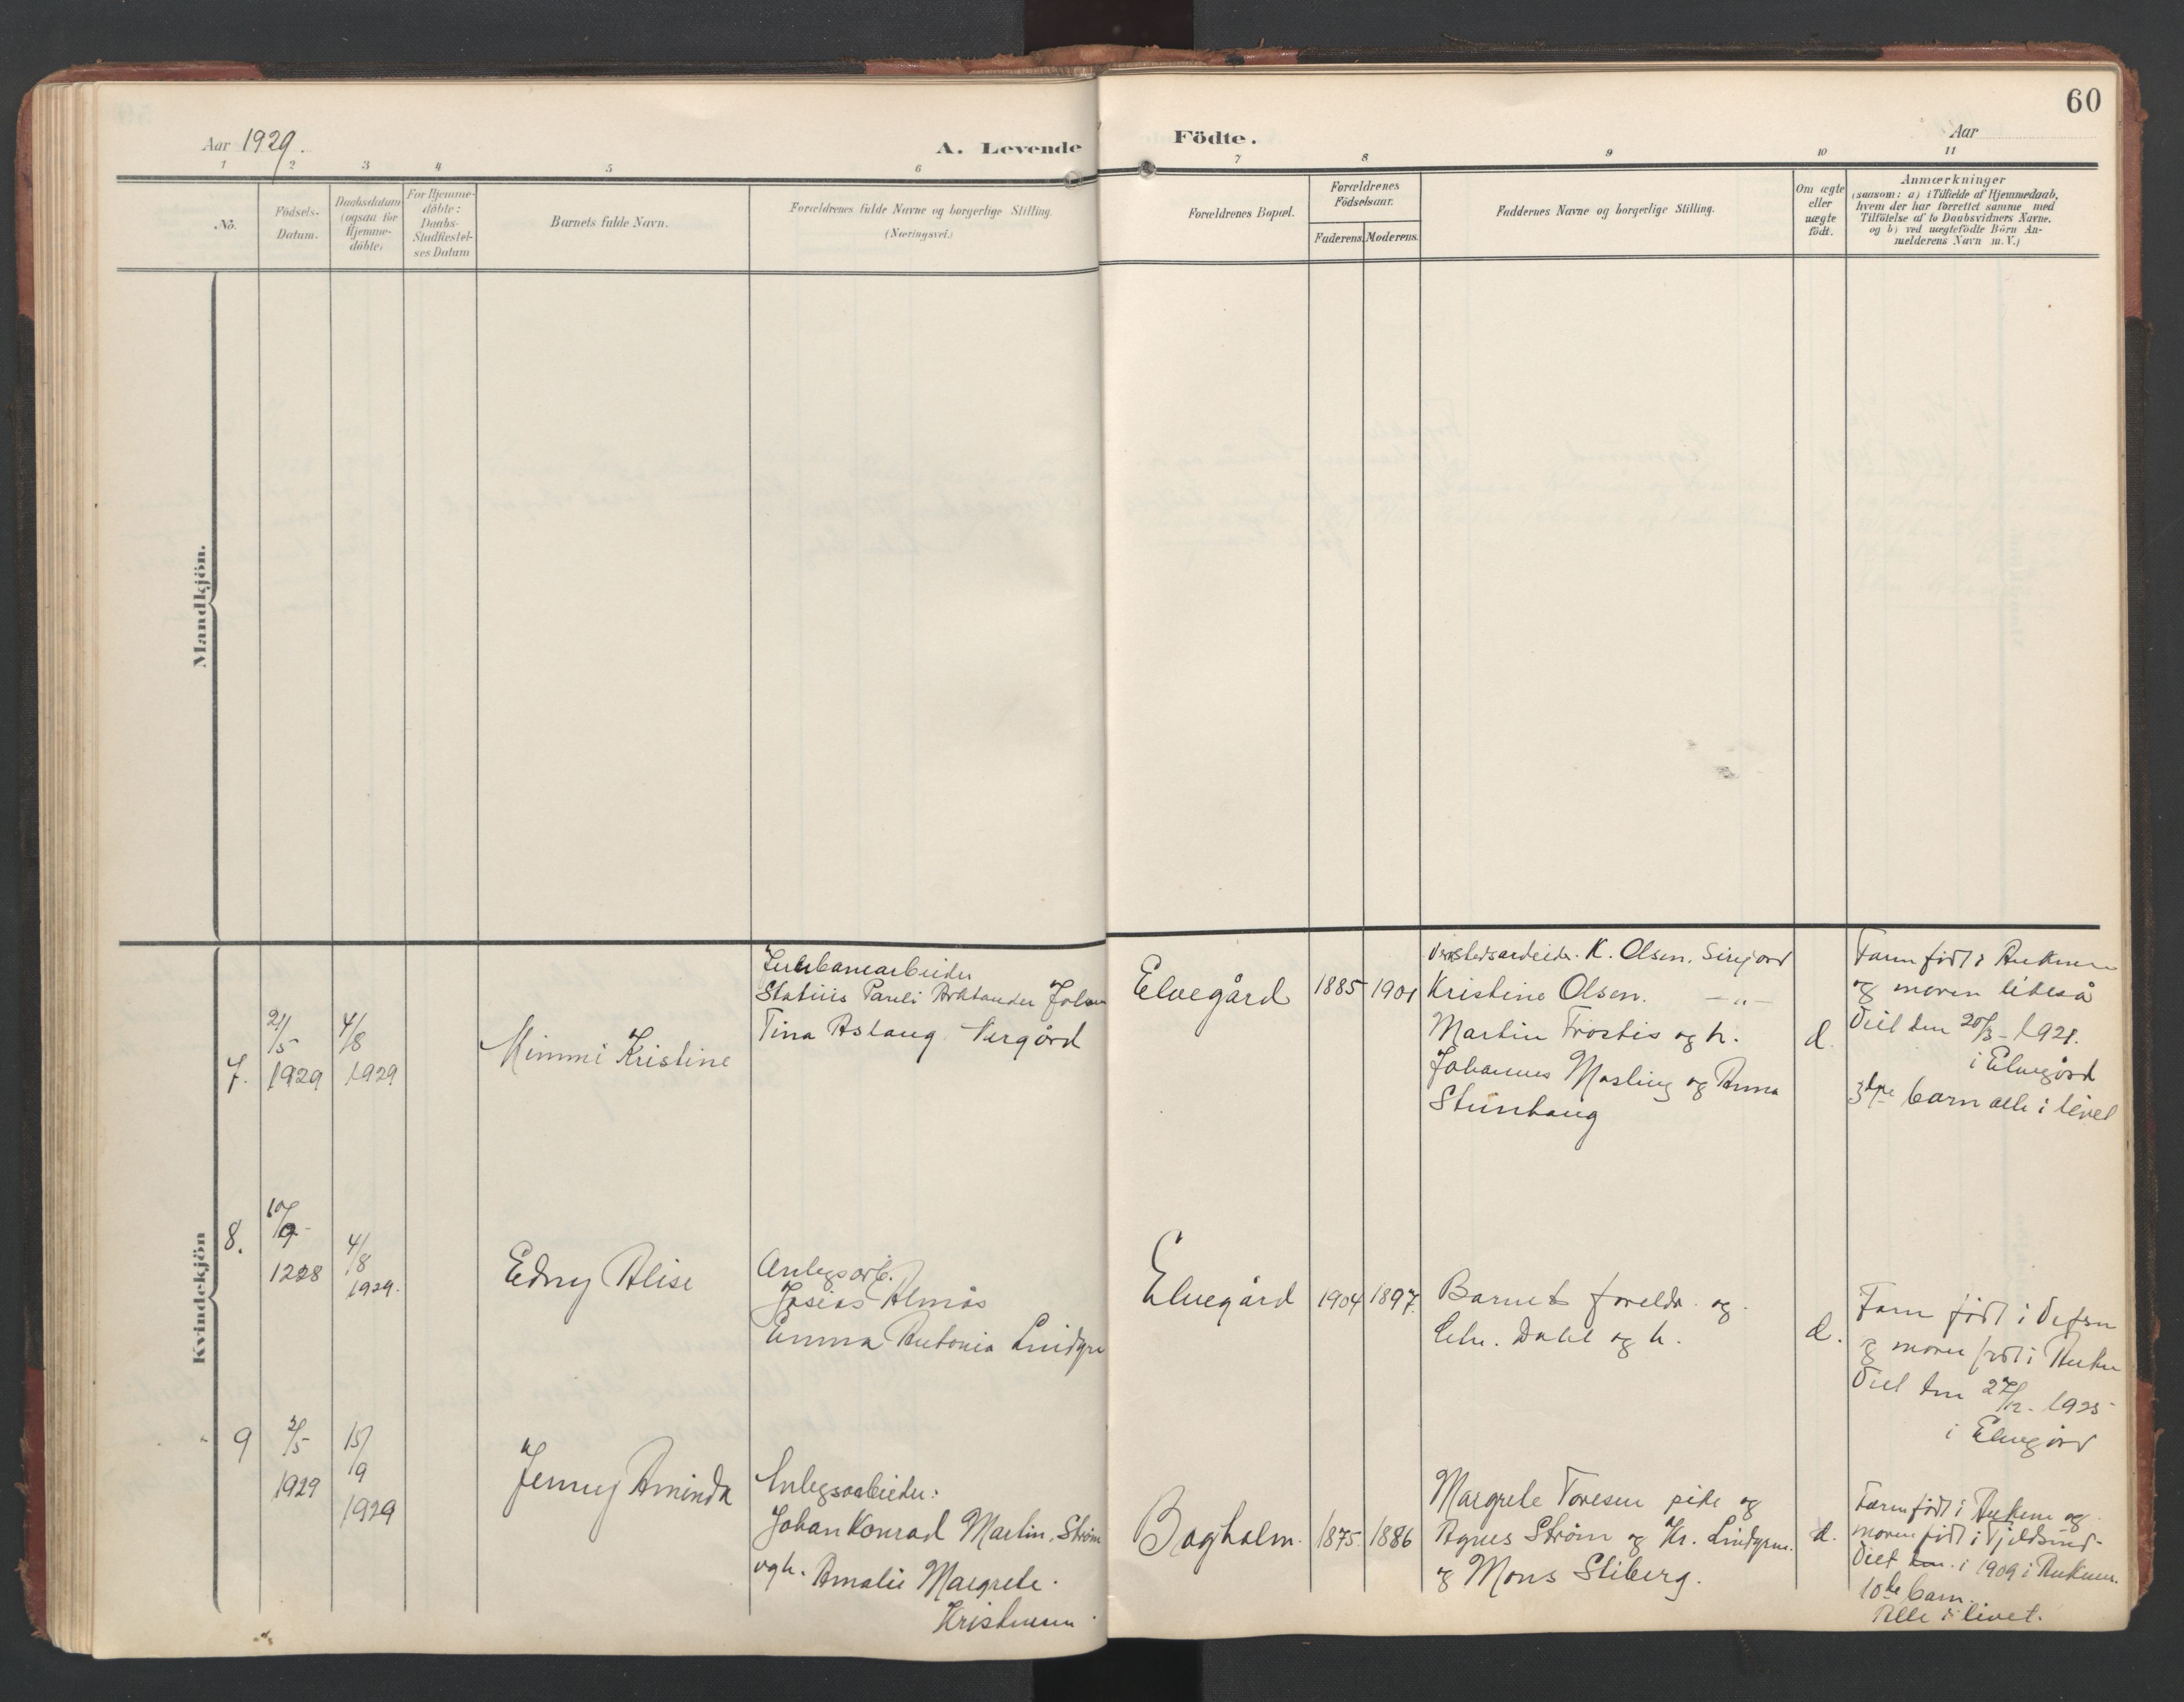 60
Aar 1929.
A. Levende Födte.
Aar
1 2 3 4 5 6 7 8 9 10 11
No.
Födsels-
Datum.
Daabsdatum
(ogsaa for
Hjemme-
döbte)
For Hjemme-
döbte:
Daabs-
Stadfæstel-
ses Datum
Barnets fulde Navn.
Forældrenes fulde Navne og borgerlige Stilling.
(Næringsvei.)
Forældrenes Bopæl.
Forældrenes
Födselsaar.
Faderens. Moderens.
Faddernes Navne og borgerlige Stilling.
Om ægte
eller
uægte
födt.
Anmærkninger
(saasom: a) i Tilfælde af Hjemmedaab,
hvem der har forrettet samme med
Tilföielse af to Daabsvidners Navne.
og b) ved uægtefödte Börn An-
melderens Navn m. V.)
Mandkjön.
Kvindekjön
7.
21/5
1929
4/8
1929
Mimmi Kristine
Statius Pauli
Tina Aslaug
Elvegård
1885
1901
K. Olsen.
Kristine Olsen. —"—
Martin Trostis og h.
Johannes Mosling og Anna
Stunhaug
d.
Faren født i
og moren likeså
Viet den 20/3- 1921.
i Elvegård
3dje barn alle i livet
8.
10/9-
1928
4/8
1929.
Edny Alise
Anlegsarb.
Josias Almås
Emma Antonia Lindgre
Elvegård
1904
1897.
Barnets foreldr. og
Chr. Dahl og h.
d.
Faren født i Vefsn
og moren født i
Viet den 27/12- 1925
i Elvegård
9
2/5-
1929
15/9
1929
Jenny Aminda
Anlegsarbeider:
Johan Konrad Martin Strøm
og h. Amalie Margrete
Kristensen
Bogholm.
1875.
1886
Margrete Toresen pike og
Agnes Strøm og Kr. Lindgren.
og Mons Stiberg.
d.
Faren født i Ankenes og
moren født i Tjeldsund-
Viet den. i 1909 i Ankenes.
10de barn.
Alle i livet.